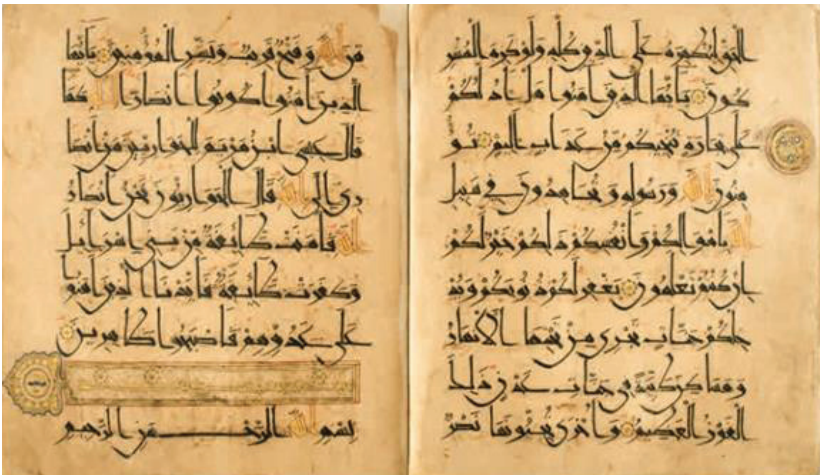 الحق ليظهره على الدين كله ولو كره المشر
كون يأيها الذين امنوا هل ادلكم
على تجارة تنجيكم من عذاب اليم تؤ
منون بالله ورسوله وتجاهدون في سبيل
الله باموالكم وانفسكم ذلكم خير لكم
ان كنتم تعلمون يغفر لكم ذنوبكم ويد
خلكم جنات تجري من تحتها الانهار
ومساكن طيبة في جنات عدن ذلك
الفوز العظيم واخرى تحبونها نصر
من الله وفتح قريب وبشر المؤمنين يأيها
الذين امنوا كونوا انصارا لله كما
قال عيسى ابن مريم للحواريين من انصا
ري الى الله قال الحواريون نحن انصار
الله فامنت طائفة من بني اسرائيل
وكفرت طائفة فايدنا الذين امنوا
على عدوهم فاصبحوا ظاهرين
بسم الله الرحمن الرحيم